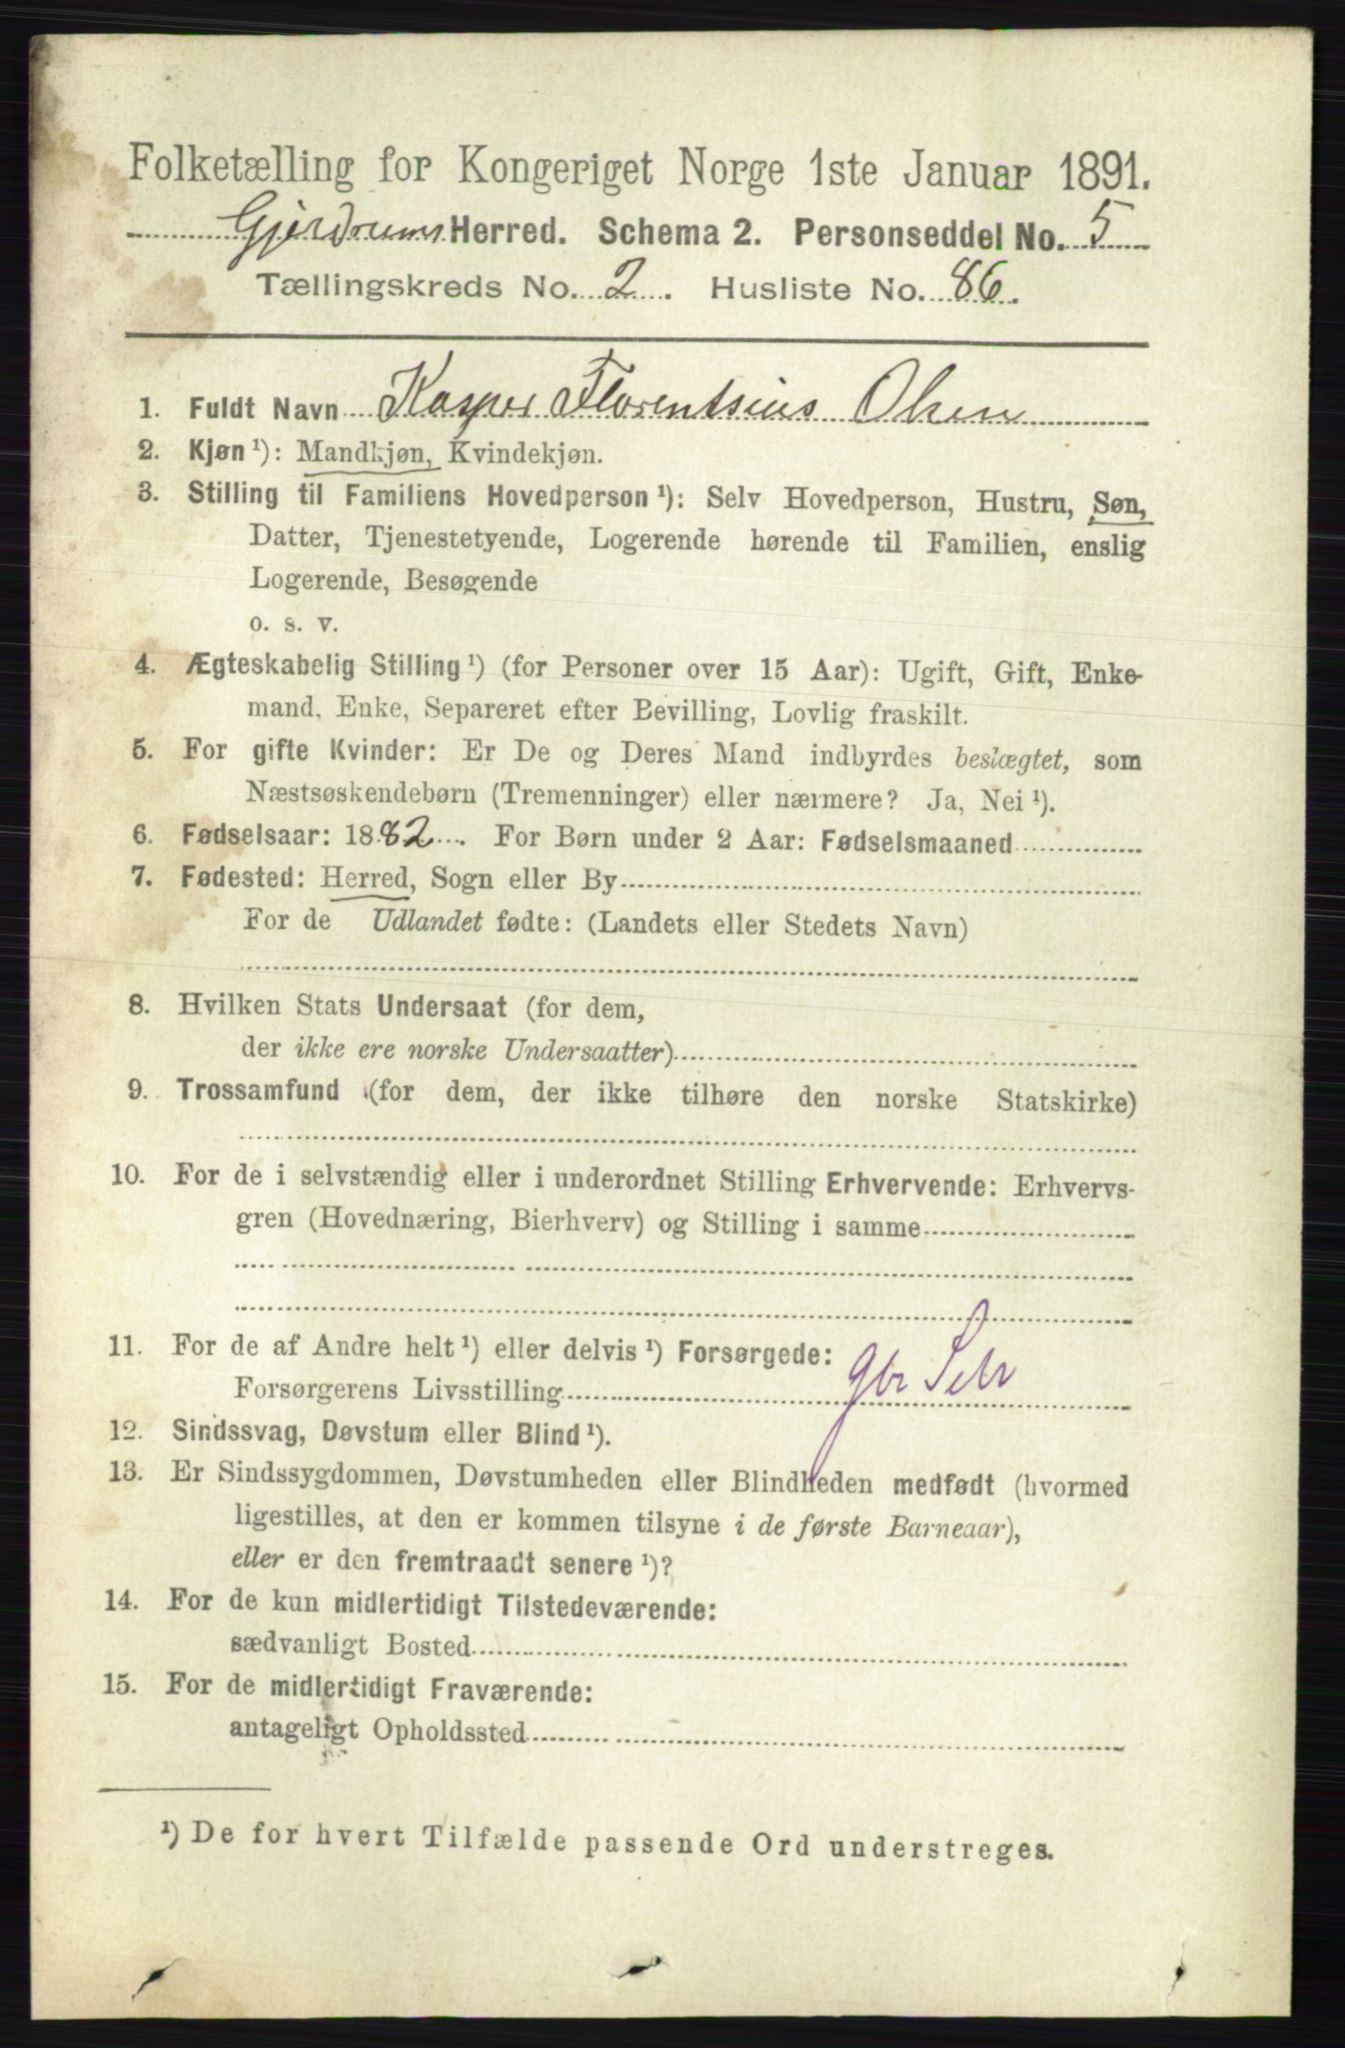 Folketælling for Kongeriget Norge 1ste Januar 1891.
Gjerdrums Herred. Schema 2. Personseddel No. 5
Tællingskreds No. 2. Husliste No. 86.
1. Fuldt Navn Kasper Florentsius Olsen
2. Kjøn ¹): Mandkjøn, Kvindekjøn.
3. Stilling til Familiens Hovedperson ¹): Selv Hovedperson, Hustru, Søn,
Datter, Tjenestetyende, Logerende hørende til Familien, enslig
Logerende, Besøgende
o. s. v.
4. Ægteskabelig Stilling ¹) (for Personer over 15 Aar): Ugift, Gift, Enke-
mand, Enke, Separeret efter Bevilling, Lovlig fraskilt.
5. For gifte Kvinder: Er De og Deres Mand indbyrdes beslægtet, som
Næstsøskendebørn (Tremenninger) eller nærmere? Ja, Nei ¹).
6. Fødselsaar: 1882. For Børn under 2 Aar: Fødselsmaaned
7. Fødested: Herred, Sogn eller By
For de Udlandet fødte: (Landets eller Stedets Navn)
8. Hvilken Stats Undersaat (for dem,
der ikke ere norske Undersaatter)
9. Trossamfund (for dem, der ikke tilhøre den norske Statskirke)
10. For de i selvstændig eller i underordnet Stilling Erhvervende: Erhvervs-
gren (Hovednæring, Bierhverv) og Stilling i samme
11. For de af Andre helt ¹) eller delvis ¹) Forsørgede:
Forsørgerens Livsstilling gbr
12. Sindssvag, Døvstum eller Blind ¹).
13. Er Sindssygdommen, Døvstumheden eller Blindheden medfødt (hvormed
ligestilles, at den er kommen tilsyne i de første Barneaar),
eller er den fremtraadt senere ¹)?
14. For de kun midlertidigt Tilstedeværende:
sædvanligt Bosted
15. For de midlertidigt Fraværende:
antageligt Opholdssted
¹) De for hvert Tilfælde passende Ord understreges.